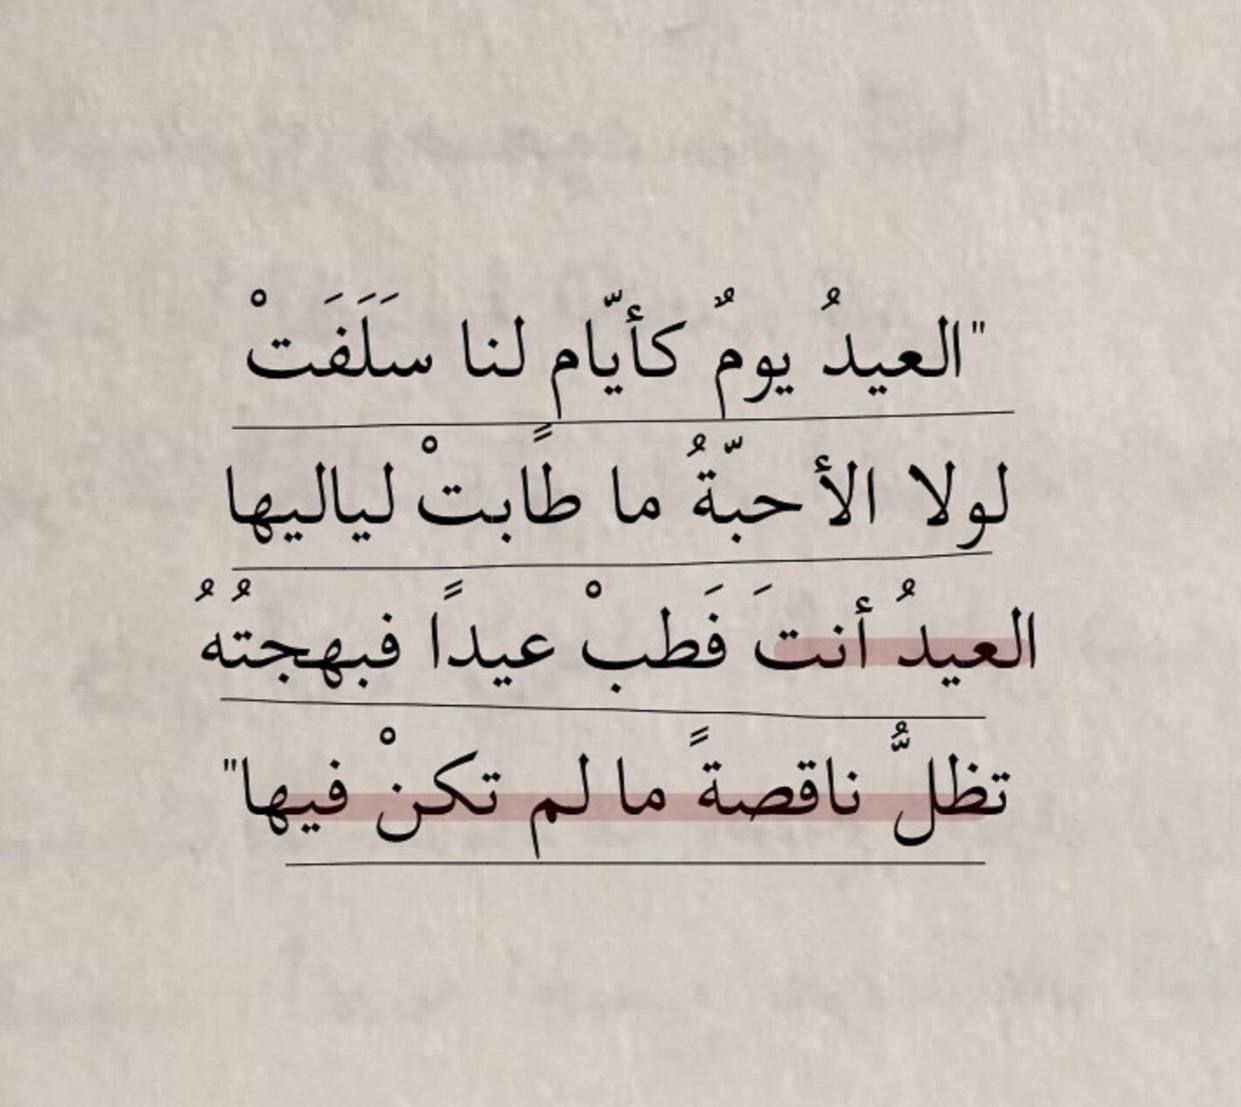 "العيدُ يومٌ كأيّامٍ لنا سلَفَتْ
لولا الأحبّةُ ما طابتْ لياليها
العيدُ أنتَ فَطبْ عيدًا فبهجتُهُ
تظلُّ ناقصةً ما لم تكنْ فيها"